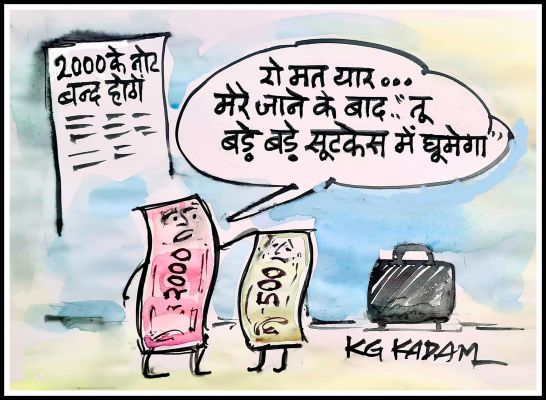 2000 के नोट
बन्द होगे
रो मत यार...
मेरे जाने के बाद.. "तू
बड़े बड़े सूटकेस में घूमेगा"
2000
500
KG KADAM